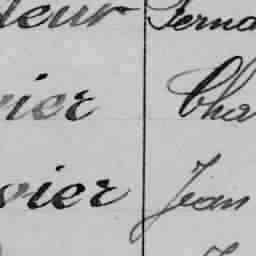 deur Ferna
vier Cha
vier Jean